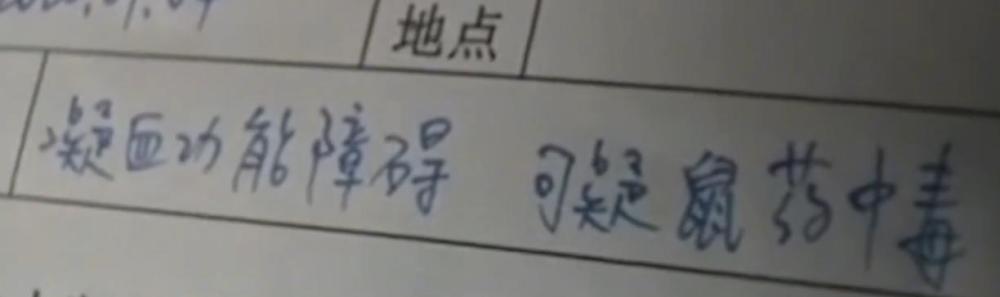 地点
凝血功能障碍 可疑鼠药中毒